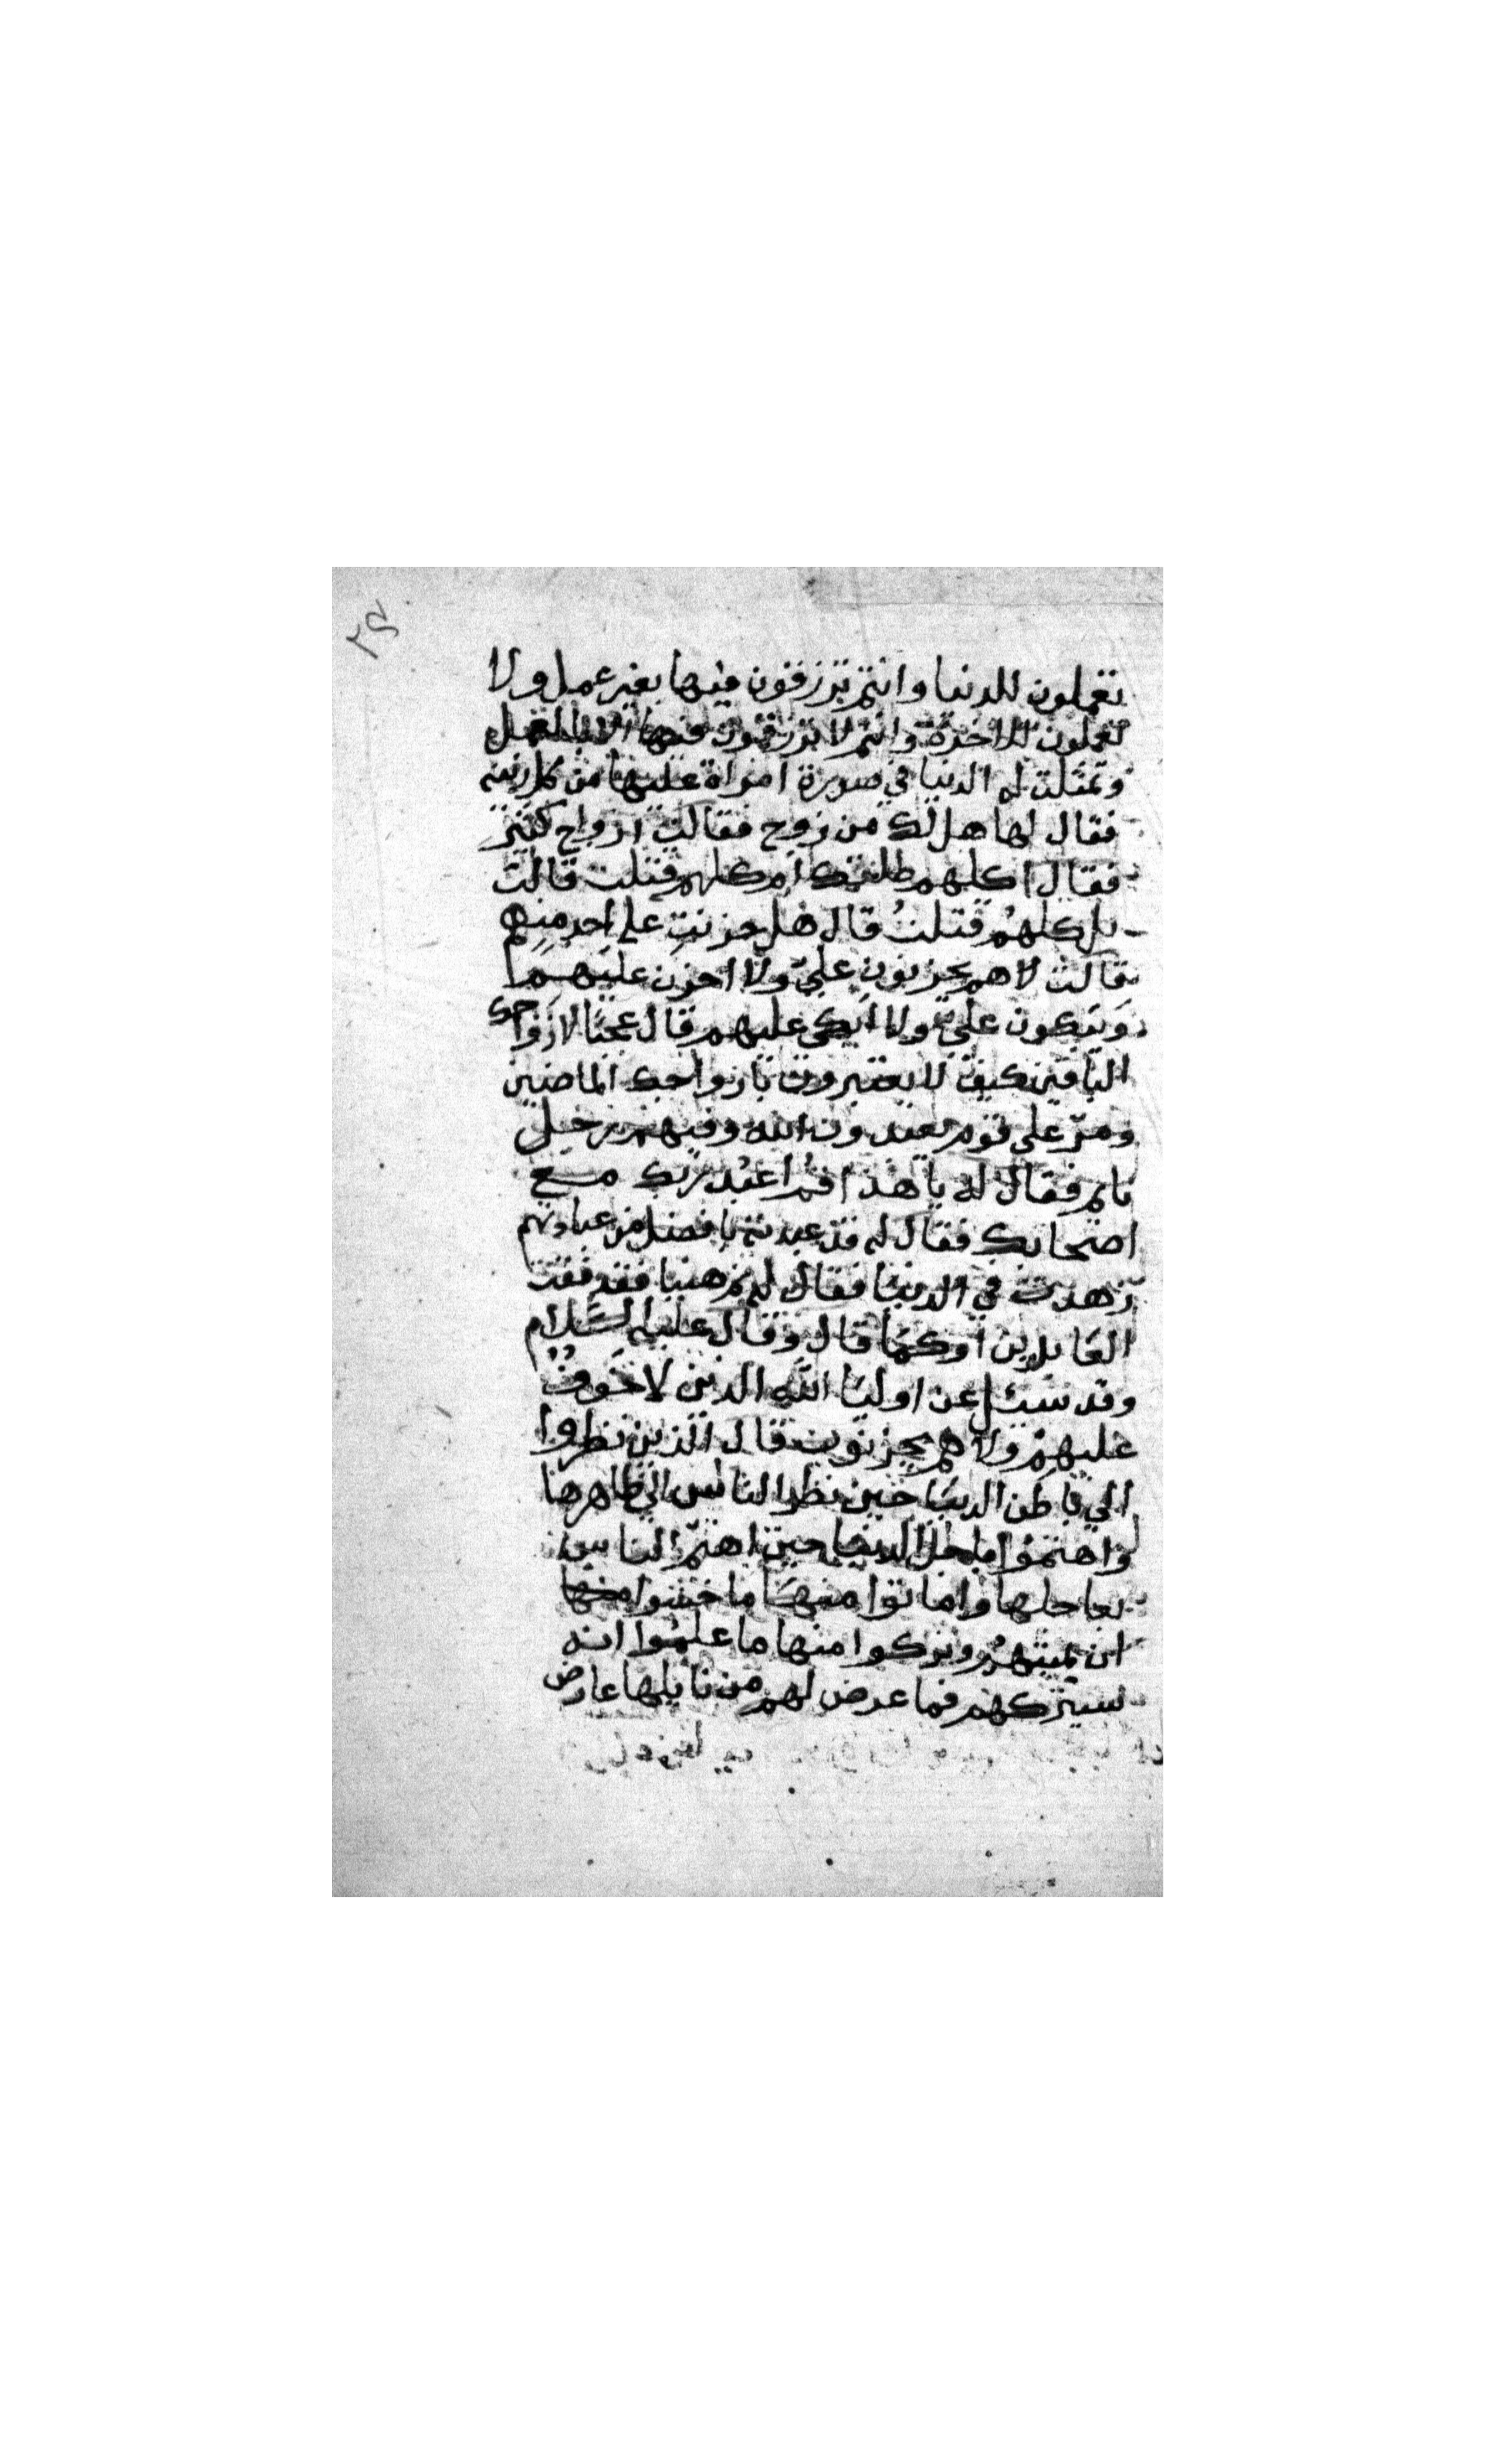 ٢٤
تعملون للدنيا وانتم ترزقون فيها بغير عمل ولا
تعملون للاخرة وانتم لا ترزقون فيها الا بالعمل
وتمثلت له الدنيا في صورة امراة عليها من كل زينه
فقال لها هل لك من زوج فقالت ازواج كثير
فقال اكلهم طلقك ام كلهم قتلت قالت
بل كلهُم قتلتُ قال هل حزنتِ على احد منهم
فقالت لا هم يحزنون عليّ ولا احزن عليهم
ويبكون عليّ ولا ابكي عليهم قال عجبًا لازواجك
الباقين كيف لا يعتبرون بازواجك الماضين
ومرّ على قوم يعبدون الله وفيهم رجل
نايم فقال له يا هذا قم اعبُد ربك مع
اصحابك فقال له قد عبدته بافضل من عبادتهم
زهدت في الدنيا فقال له نم هنيا فقد فقت
العابدين او كما قال وقال عليه السَّلام
وقد سُئل عن اوليا الله الذين لا خوفٌ
عليهمْ ولا هم يحزنون قال الذين نظروا
الي باطن الدنيا حين نظر الناس الي ظاهرها
واهتمّوا باجل الدنيا حين اهتمّ الناس
بعاجلها واماتوا منهَا ما خشوا منها
ان يميتهُم وتركوا منها ما علموا انه
سيتركهم فما عرض لهم من نايلها عارض